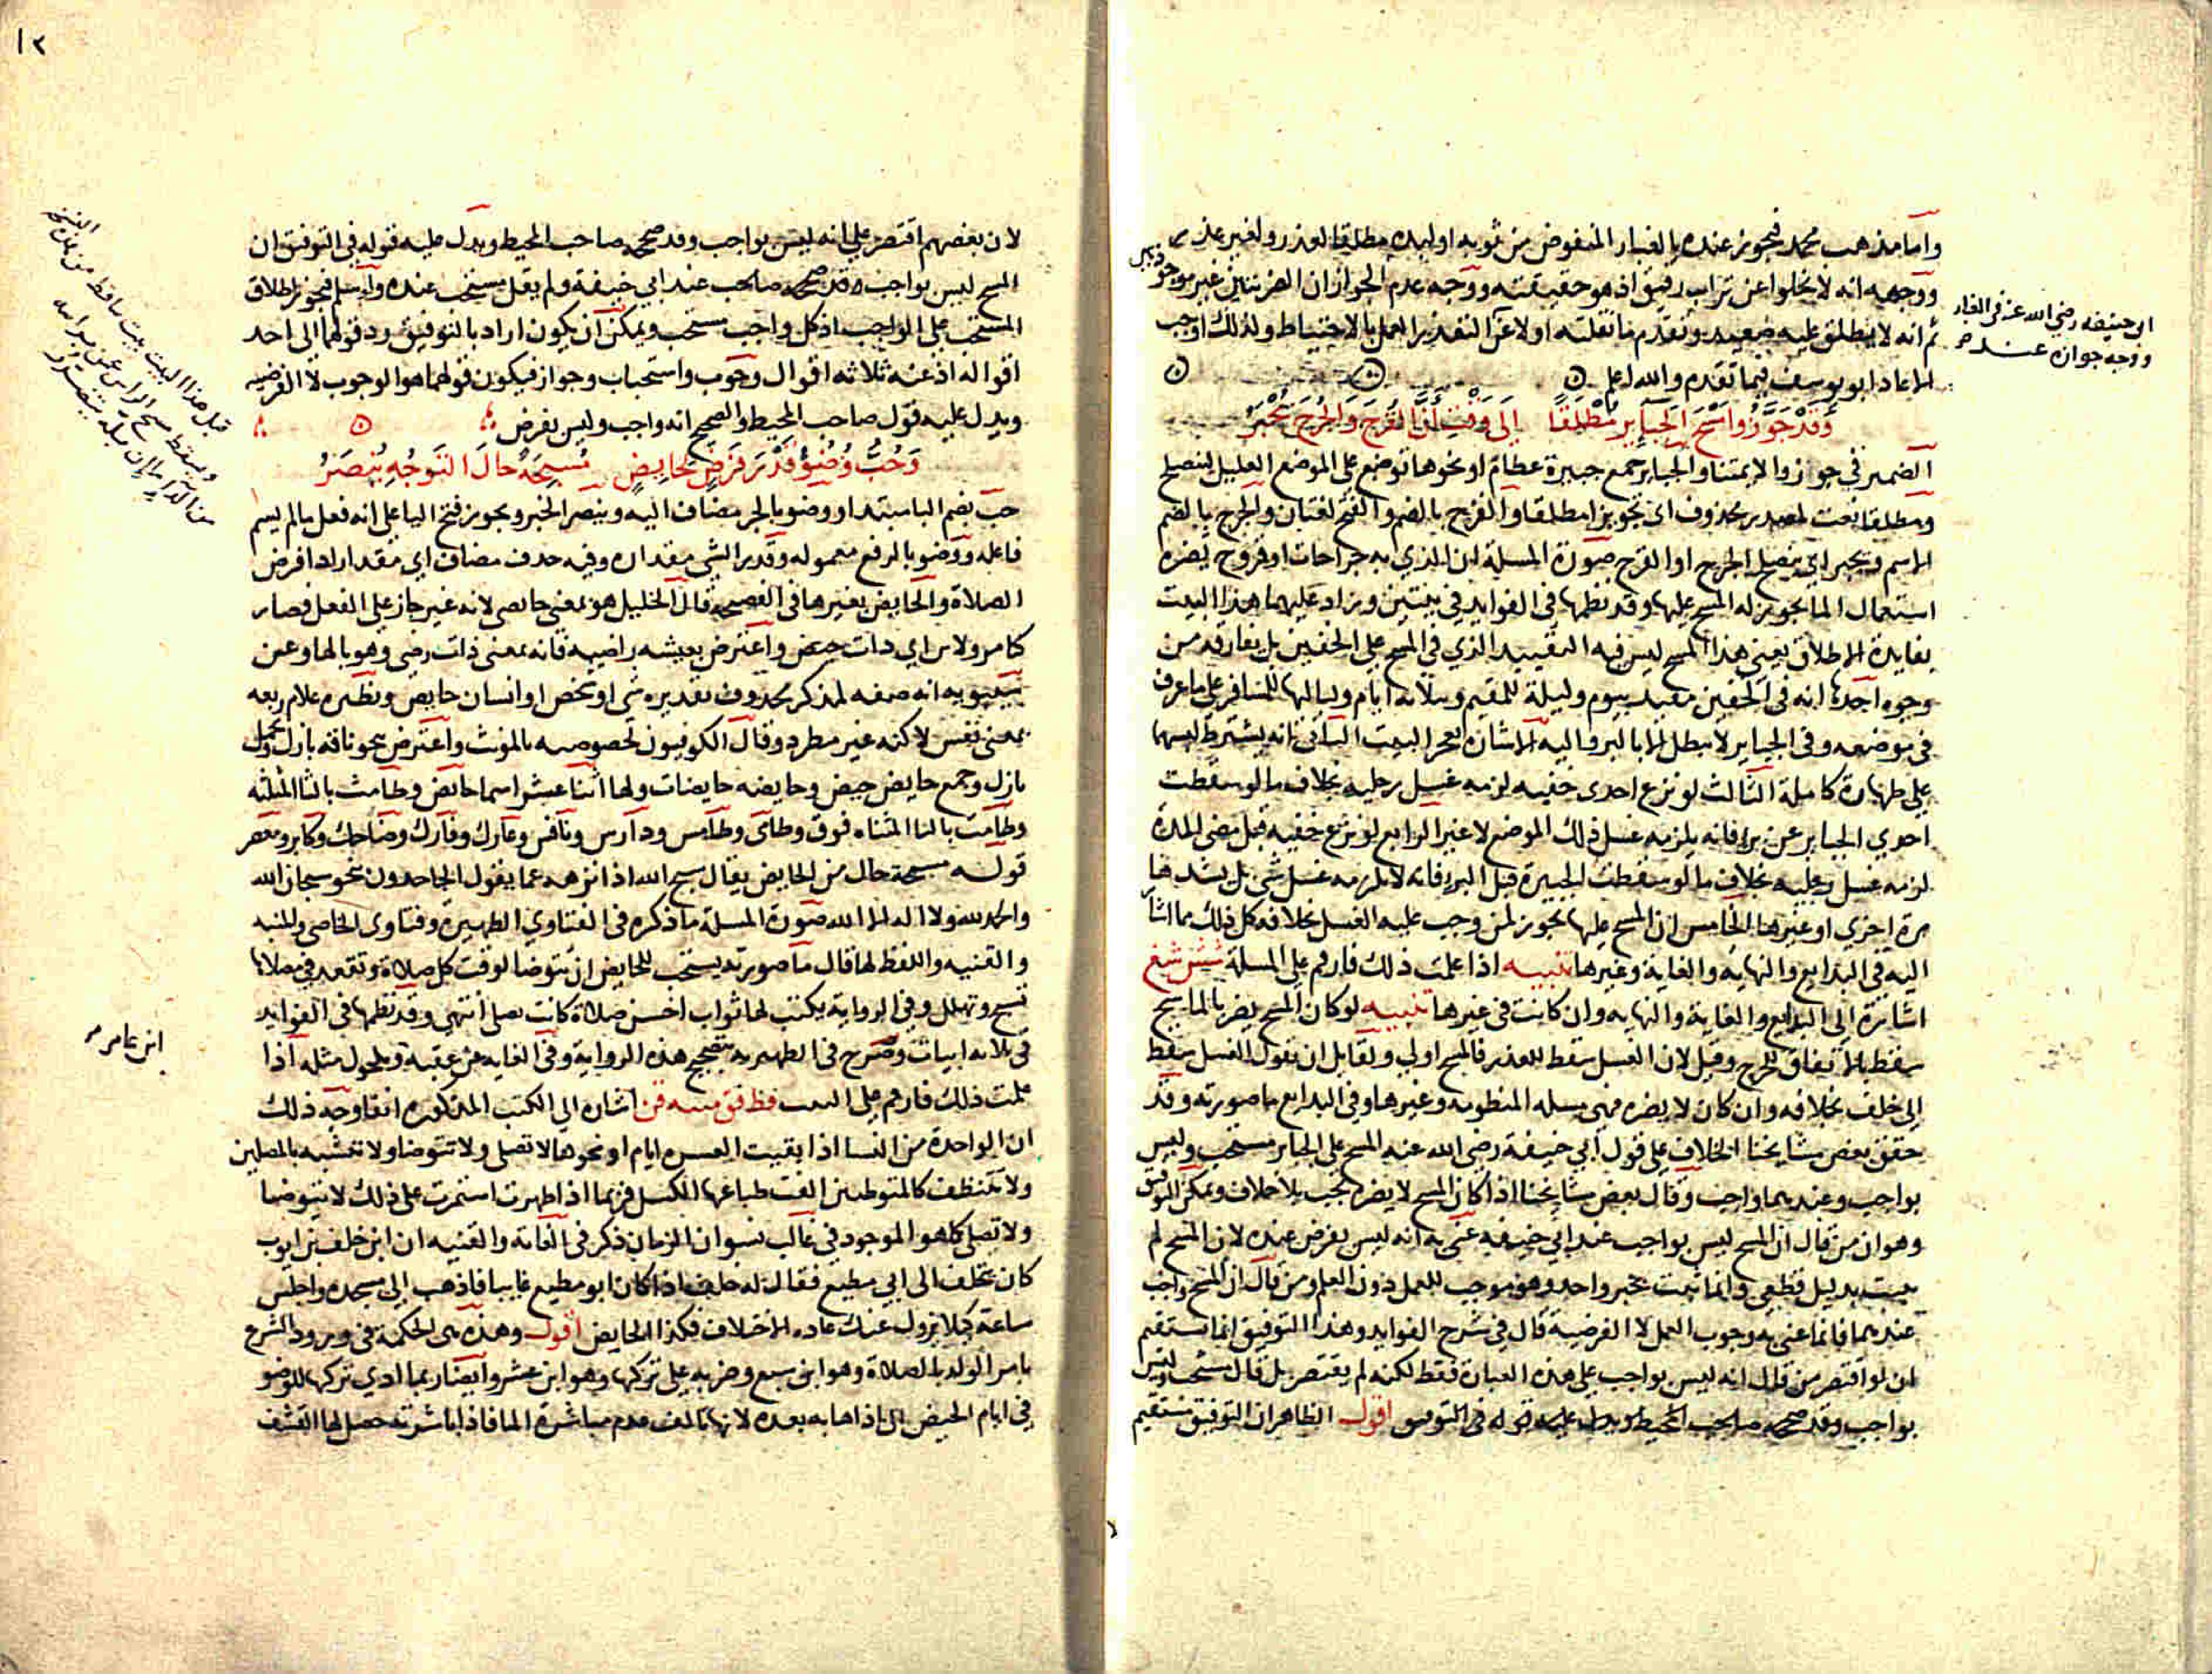 واما مذهب محمد فيجوز عنده بالغبار المنفوض من ثوبه او لبده مطلقا لعذر ولغير عذر
ووجهه انه لا يخلوا عن تراب رقيق اذ هو حقيقته ووجه عدم الجواز ان الغير موجود
ثم انه لا ينطلق عليه صعيد وتقدم ما نقلته اولا عن التقدير العمل بالاحتياط ولذلك اوجب
الاعاد ابو يوسف فيما تقدم والله اعلم
ابي حنيفه رضي الله عنه في الغبار
ووجه جوازه عنده
وَقَدْ جَوَّزُوا مَسْحَ الجَبَايِرِ مُطْلَقًا إلى وَقْتِ أنَّ القُرْحَ وَالجُرْحَ يُجْبَرُ
الضمير في جوزوا لايمتنا والجباير جمع جبيرة عظام او نحوها توضع على الموضع العليل لينصلح
ومطلقا نعت لمصدر محذوف اي تجويزا مطلقا والقرح بالضم والفتح لغتان والجرح بالضم
الاسم ويجبر اي ينصلح الجرح او القرح صورة المسلة ان الذي به جراحات او قروح يضره
استعمال الما يجوز له المسح عليها وقد نظمها في الفوايد في بيتين ويزاد عليهما هذا البيت
بفايدة الاطلاق يعني هذا المسح ليس فيه التقييد الذي في المسح على الخفين بل يفارقه من
وجوه احدها انه في الخفين مقيد بيوم وليلة للمقيم وثلاثه ايام ولياليها للمسافر على ما عرف
في موضعه وفي الجباير لا يبطل الا بالبر واليه الاشاره بعجز البيت الثاني انه يشترط لبسهما
على طهارة كاملة الثالث لو نزع احدى خفيه لزمه غسل رجليه بخلاف ما لو سقطت
احدي الجباير عن بر فانه يلزمه غسل ذلك الموضع لا غير الرابع لو نزع خفيه قبل مضى المدة
لزمه غسل رجليه بخلاف ما لو سقطت الجبيرة قبل البر فانه لا يلزمه غسل شي بل يشدها
مرة اخرى او غيرها الخامس ان المسح عليها يجوز لمن وجب عليه الغسل بخلافه كل ذلك مما اشار
اليه في البدايع والنهاية والغاية وغيرها تنبيه اذا علمت ذلك فارقم على المسلة
اشارة الى البدايع والغاية والنهايه وان كانت في غيرها تنبيه لو كان المسح يضر بالماسح
سقط بالاتفاق للحرج وقيل لان الغسل سقط للعذر فالمسح اولى ولقايل ان يقول الغسل سقط
الى خلف بخلافه وان كان لا يضره فهي مسله المنظومه وغيرها وفي البدايع ما صورته وقد
حقق بعض مشايخنا الخلاف على قول ابي حنيفة رضي الله عنه المسح على الجباير مستحب وليس
بواجب وعندهما واجب وقال بعض مشايخنا اذا كان المسح لا يضره يجب بلا خلاف ويمكن التوفيق
وهو ان من قال ان المسح ليس بواجب عند ابي حنيفه عنى به انه ليس بفرض عنده لان المسح لم
يثبت بدليل قطعي وانما ثبت بخبر واحد وهو موجب للعمل دون العلم ومن قال ان المسح واجب
عندهما فانما عنى به وجوب العمل لا الفرضية قال في شرح الفوايد وهذا التوفيق انما يستقيم
ان لو اقتصر من قال انه ليس بواجب على هذه العبارة فقط لكنه لم يقتصر بل قال مستحب وليس
بواجب وقد صححه صاحب المحيط ويدل عليه قوله في التوفيق اقول الظاهر ان التوفيق مستقيم
١٢
لان بعضهم اقتصر على انه ليس بواجب وقد صححه صاحب المحيط ويدل عليه قوله في التوفيق ان
المسح ليس بواجب عند ابي حنيفة ولم يقل مستحب عنده ولئن سلم فيجوز اطلاق
المستحب على الواجب اذ كل واجب مستحب ويمكن ان يكون اراد بالتوفيق رد قولهما الى احد
اقواله اذ عنه ثلاثه اقوال وجوب واستحباب وجواز فيكون قولهما هو الوجوب لا الفرضيه
ويدل عليه قول صاحب المحيط والصحيح انه واجب وليس بفرض
وَحُبَّ وُضُوْءٌ قَدْرَ فَرْضٍ لحايِضٍ مُسَبِّحَةً حَالَ التَوَجُّهِ يُنْصَرُ
حب بضم البا مبتدا ووضو بالجر مضاف اليه وينصر الخبر ويجوز فتح اليا على انه فعل ما لم يسم
فاعله ووضو بالرفع معموله وقدر الشي مقداره وفيه حذف مضاف اي مقدار ادا فرض
الصلاة والحايض بغير ها في الفصيحة قال الخليل هو بمعنى حائص لانه غير جاز على الفعل فصار
كتامر ولابن اي ذات حيض واعترض بعيشه راضيه فانه بمعنى ذات رضي وهو بالها وعن
سيبويه انه صفه لمذكر محذوف تقديره شي او شخص او انسان حايض ونظيره غلام ربعه
بمعنى نفس لاكنه غير مطرد وقال الكوفيون لخصوصيه بالمونث واعترض بنحو ناقه بازل وجمل
بازل وجمع حايض حيض وحايضه حايضات ولها اثنا عشر اسما حايض وطامث بالثا المثلثه
وطامت بالتا المثناه فوق وطامى وطامس ودارس ونافس وعارك وفارك وضاحك وكابر ومعصر
قوله مسبحة حال من الحايض يقال سبح الله اذا نزهه عما يقول الجاحدون نحو سبحان الله
والحمد لله ولا اله الا الله صورة المسلة ما ذكره في الفتاوي الظهيرة وفتاوى الخاصي والمنيه
والقنيه واللفظ لها قال ما صورته يستحب للحايض ان تتوضا لوقت كل صلاة وتقعد في مصلاها
تسبح وتهلل وفي الرواية يكتب لها ثواب احسن صلاة كانت تصلى انتهى وقد نظمها في الفوايد
في ثلاثه ابيات وصرح في الظهيريه بتصحيح هذه الرواية وفي الغايه عن عقبة ومكحول مثله اذا
علمت ذلك فارقم على البيت اشاره الى الكتب المذكوره انفا وجه ذلك
ان الواحدة من النسا اذا بقيت العشره ايام او نحوها لا تصلي ولا تتوضا ولا تتشبه بالمصلين
ولا تتنظف كالمتوطيين الفت طباعها الكسل فربما اذا طهرت استمرت على ذلك لا تتوضا
ولا تصلي كما هو الموجود في غالب نسوان الزمان ذكر في الغاية والقنيه ان ابن خلف بن ايوب
كان يختلف الى ابي مطيع فقال له خلف اذا كان ابو مطيع غايبا فاذهب الى مسجده واجلس
ساعة كيلا تزول عنك عاده الاختلاف فكذا الحايض اقول وهذه هي الحكمة في ورود الشرع
بامر الولد بالصلاة وهو ابن سبع وضربه على تركها وهو ابن عشر وايضا ربما ادي تركها للوضو
في ايام الحيض الى اذاها به بعده لانها تالف عدم مباشرة الما فاذا باشرته حصل لها التقشف
قبل هذا البيت بيت ساقط من هذه النسخة
ويسقط مسح الراس عن من براسه
من الدا ما ان بله يتضرر
ابن عامر